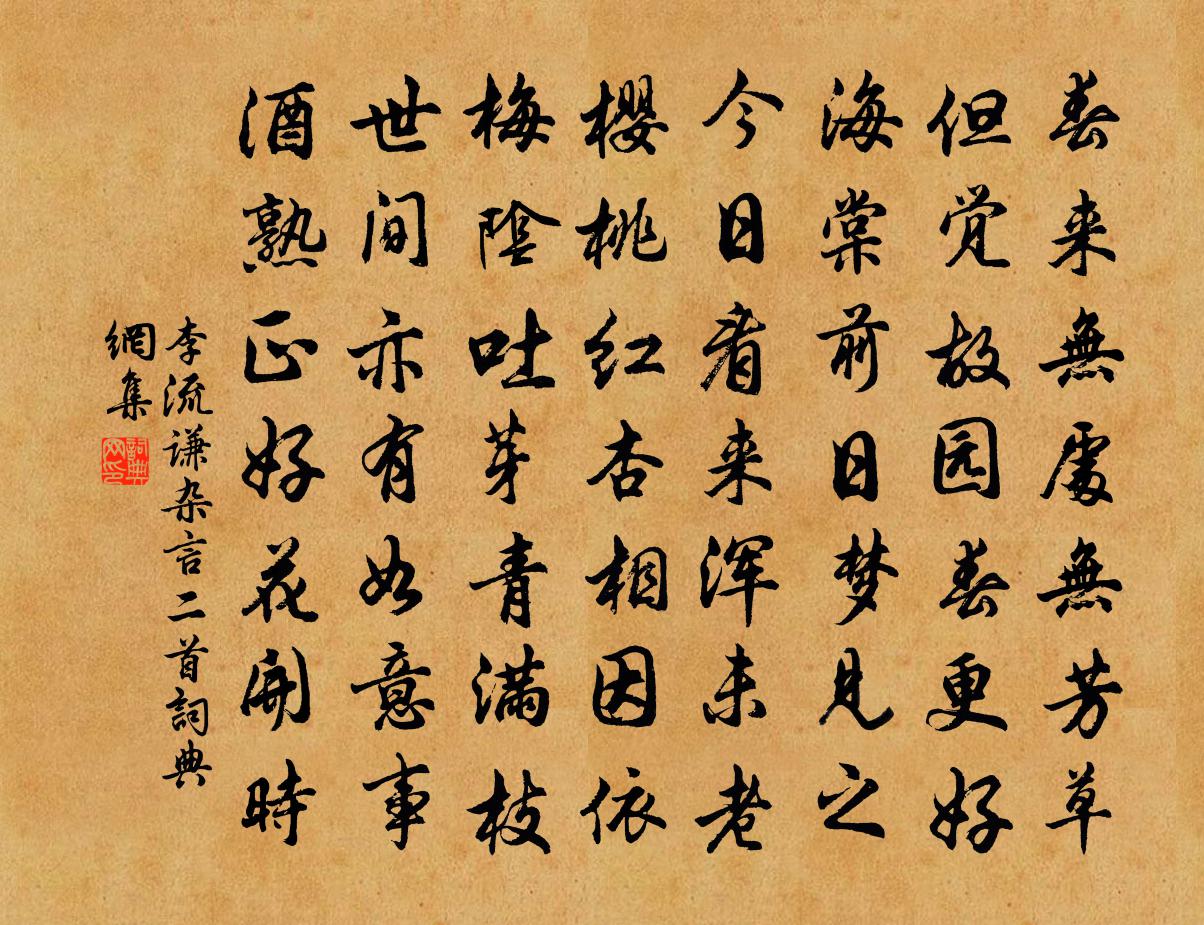 春来無處無芳草
但觉故园春更好
海棠前日梦見之
今日看来浑未老
櫻桃红杏相因依
梅陰吐芽青满枝
世间亦有如意事
酒熟正好花開時
李流谦杂言二首詞典
網集
詞典
网印